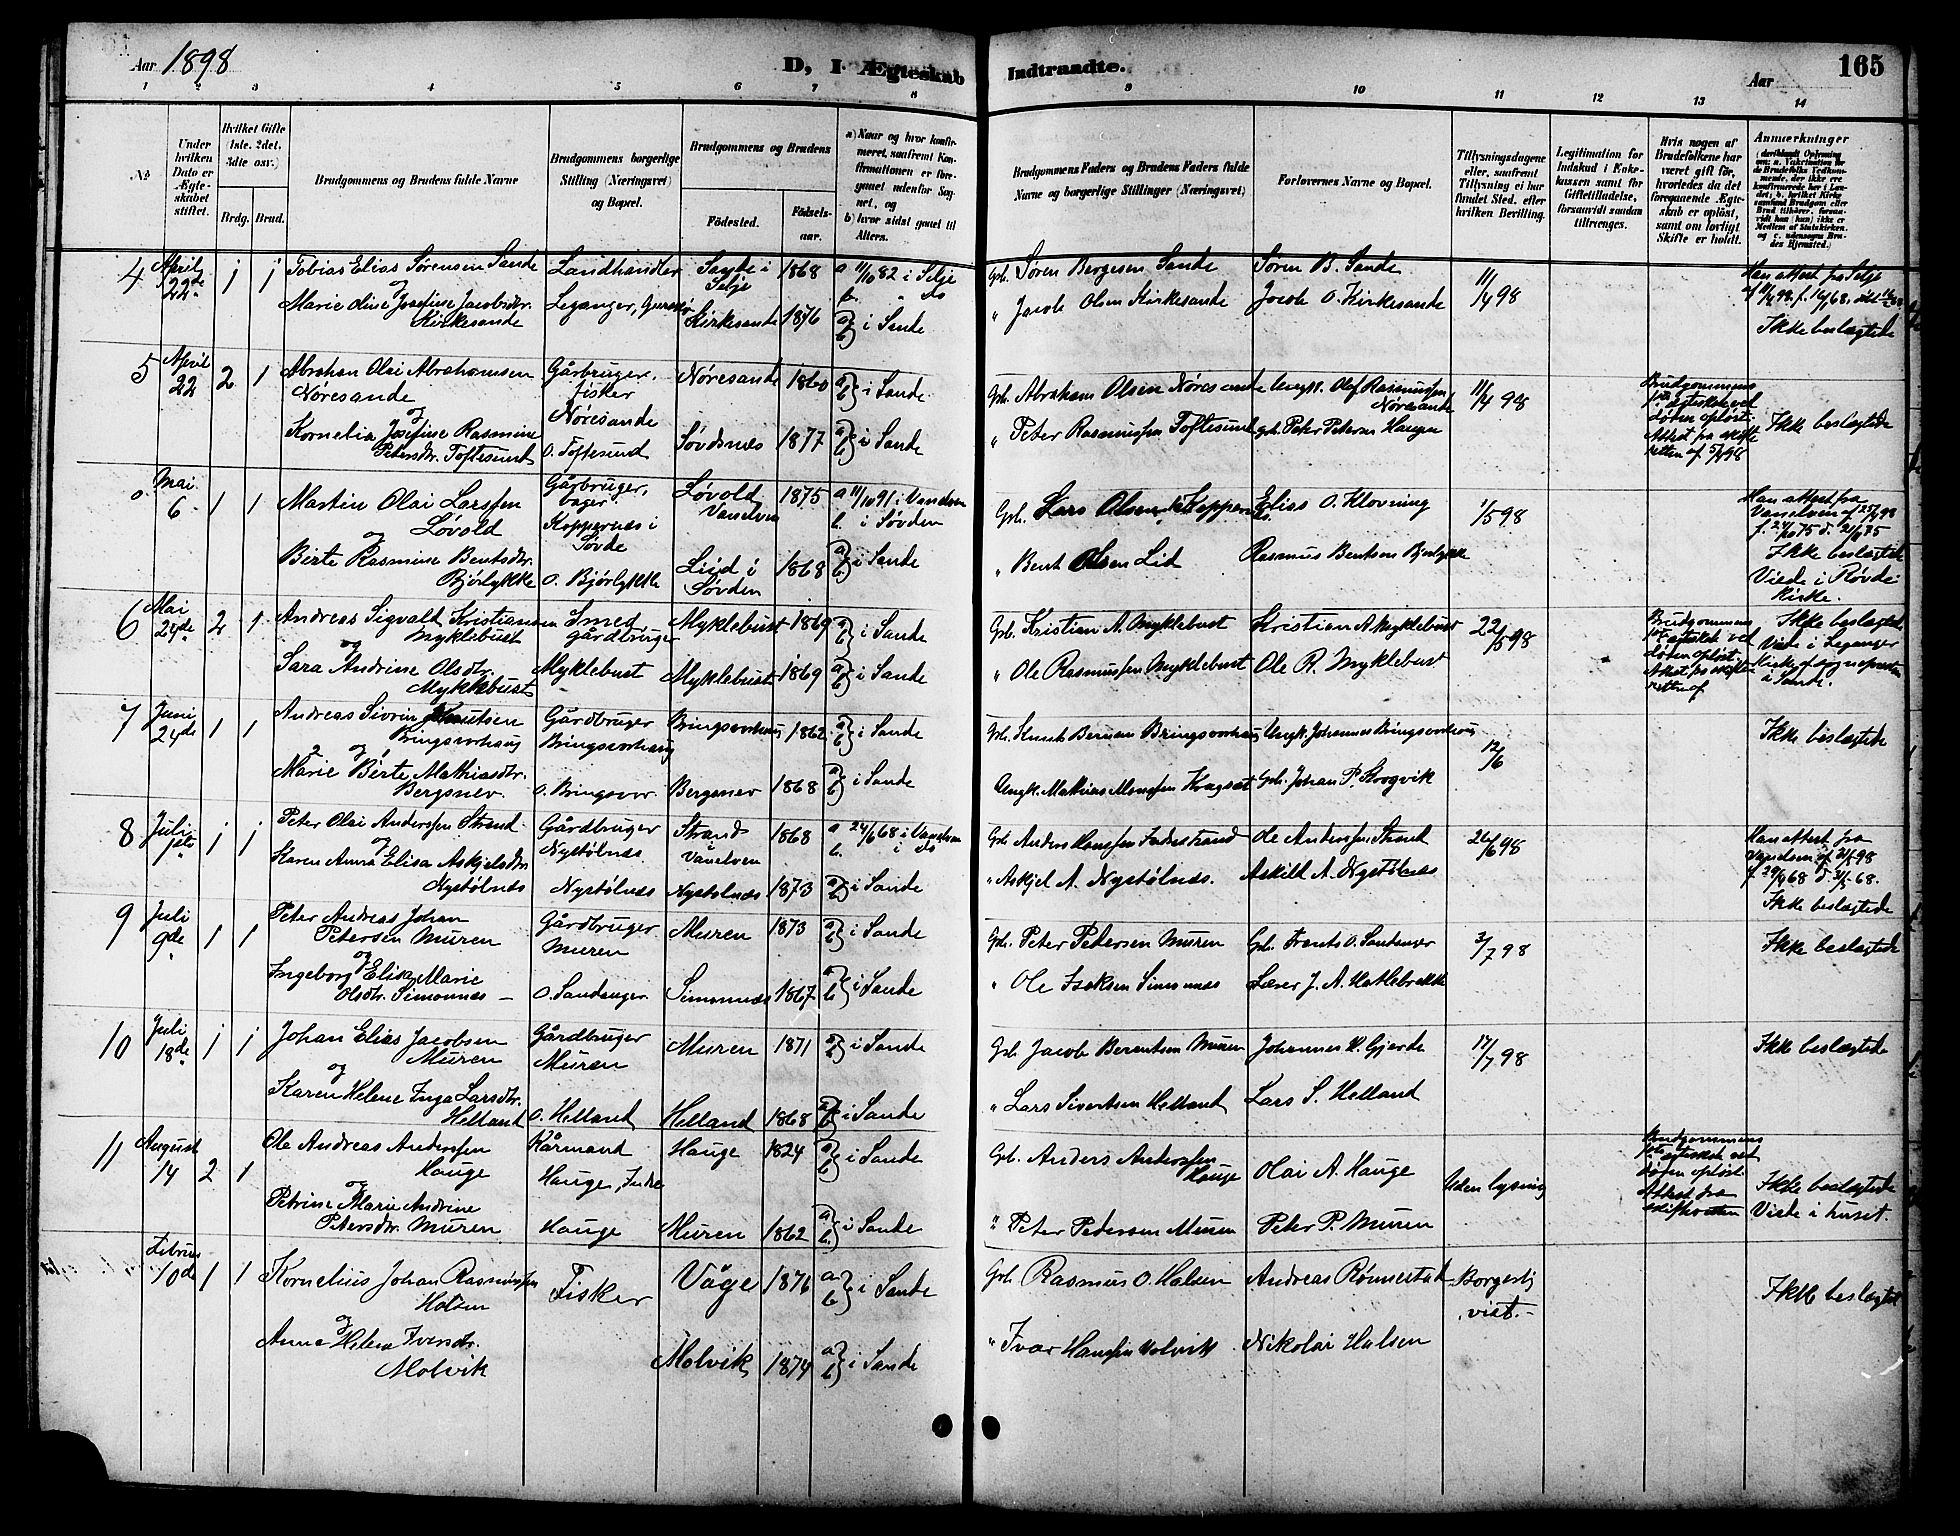 Aar 1898
D, I Ægteskab
Indtraadte.
Aar
165
1 2 3 4 5 6 7 8 9 10 11 12 13 14
№
Under hvilken Dato er Ægteskabet stiftet.
Hvilket Gifte (1ste. 2det. 3die osv.).
Brdg. Brud.
Brudgommens og Brudens fulde Navne
Brudgommens borgerlige Stilling (Næringsvei) og Bopæl.
Brudgommens og Brudens
Fødested.
Fødselsaar.
a) Naar og hvor konfirmeret, saafremt Konfirmationen er foregaaet udenfor Sognet, og
b) hvor sidst gaaet til Alters.
Brudgommens Faders og Brudens Faders fulde Navne og borgerlige Stillinger (Næringsvei)
Forlovernes Navne og Bopæl.
Tillysningsdagene eller, saafremt Tillysning ei har fundet Sted, efter hvilken Bevilling.
Legitimation for Indskud i Enkekassen samt for Giftetilladelse, forsaavidt saadan tiltrænges.
Hvis nogen af Brudefolkene har været gift før, hvorledes da det foregaaende Ægteskab er opløst, samt om lovligt Skifte er holdt.
Anmærkninger
4 April 22de 1 1 Tobias Elias Sørensen Sande Landhandler Selje 1868 a 11/10 82 i Selje Gbr. Søren Bergesen Sande Søren B. Sande 11/4 98 Han attest fra Selje
og Marie Oline Josefine Jacobsdtr. Kirkesande Leganger, Kirkesande 1876 a b } i Sande " Jacob Olsen Kirkesande Jacob O. Kirkesande Ikke beslægtede
5 April 22 2 1 Abraham Olai Abrahamsen Nøresande Gårbruger, fisker Nøresande Nøresande 1860 a b } i Sande Gbr. Abraham Olsen Nøresande Ungk. Olef Rasmussen Nøresande 11/4 98 Brudgommens 1ste ægteskab ved døden opløst. Attest fra skifteretten af 5/4 98
og Kornelia Josefine Rasmine Petersdtr. Toftesund O. Toftesund Søvdsnæs 1877 a b } i Sande " Peter Rasmussen Toftesund gbr. Peter Petersen Haugen Ikke beslægtede
Mai 6 1 1 Martin Olai Larssen Løvold Gårbruger, bager Koppernæs i Søvde Løvold Vanelven 1875 a 11/10 91 i Vanelven b. i Søvden Gbr. Lars Olsen Koppernæs Elias O. Klovning 1/5 98 Han attest fra Vanelven
og Birte Rasmine Bentsdtr. Bjørlykke O. Bjørlykke Liid i Søvden 1868 a b } i Sande " Bent Olsen Lid Rasmus Bentsen Bjørlykke Ikke beslægtede Viede i Røvde kirke.
6 Mai 24de 2 1 Andreas Sigvald Kristiansen Myklebust Smed gårdbruger Myklebust 1869 a b } i Sande Gbr. Kristian A. Myklebust Kristian A. Myklebust 22/5 98 Brudgommens 1ste ægteskab ved døden opløst. Attest fra skifteretten af Ikke beslægtede
og Sara Andrine Olsdtr. Myklebust Myklebust Myklebust 1869 a b } i Sande " Ole Rasmussen Myklebust Ole R. Myklebust Viede i Leganger Kirke af sognepresten i Sande.
7 Juni 24de 1 1 Andreas Sivrin Knutsen Bringsvorhaug Gårdbruger Bringsvorhaug Bringsvorhaug 1862 a b } i Sande Gbr. Knut Bringsvorhaug Ungk. Johannes Bringsvorhaug 12/6 Ikke beslægtede
og Marie Birte Mathiasdtr. Bergsnev. O. Bringsvor. Bergsnev 1868 a b } i Sande Ungk. Mathias Monssen Kragset Gbr. Johan P. Krogvik
8 Juli 1ste 1 1 Peter Olai Anderssen Strand Gårdbruger Nystølnæs Strand i Vanelven 1868 a 24/6 68 i Vanelven b. i do Gbr. Anders Hanssen Indrestrand Ole Anderssen Strand 26/6 98 Han attest fra Vanelven
og Karen Anna Elisa Askjelsdtr. Nystølnæs Nystølnæs Nystølnæs 1873 a b } i Sande " Askjel A. Nystølnæs. Askild A. Nystølnæs Ikke beslægtede
9 Juli 9de 1 1 Peter Andreas Johan Petersen Muren Gårdbruger Muren Muren 1873 a b } i Sande Gbr. Peter Pedersen Muren Gbr. Frants O. Sandanger 3/7 98 Ikke beslægtede
og Ingeborg Elisa Marie Olsdtr. Simonnæs O. Sandanger. Simonnæs 1867 a b } i Sande " Ole Isaksen Simonnæs Lærer J. A. Hatlebrekke
10 Juli 18de 1 1 Johan Elias Jacobsen Muren Gårdbruger Muren Muren 1871 a b } i Sande Gbr Jacob Berentsen Muren Johannes H. Gjerde 17/7 98 Ikke beslægtede
og Karen Helene Inga Larsdtr. Helland O. Helland Helland 1868 a b } i Sande " Lars Sivertsen Helland Lars S. Helland
11 August 14 2 1 Ole Andreas Anderssen Hauge Kårmand Hauge, Indre Hauge 1824 a b } i Sande Gbr. Anders Anderssen Hauge Olai A. Hauge Uden lysning Brudgommens ægteskab ved døden opløst Attest fra skifteretten Ikke beslægtede
og Petrine Marie Andrine Petersdtr. Muren Hauge Muren 1862 a b } i Sande " Peter Pedersen Muren Peter P. Muren Viede i huset.
Februar 10de 1 1 Kornelius Johan Rasmussen Halsen Fisker Våge 1876 a b } i Sande Gbr Rasmus O. Halsen Andreas Rønnestad Borgerlig viet. Ikke beslægtet
og Anna Helena Iversdtr. Molvik Molvik 1874 a b } i Sande " Ivar Hanssen Molvik Nikolai Halsen